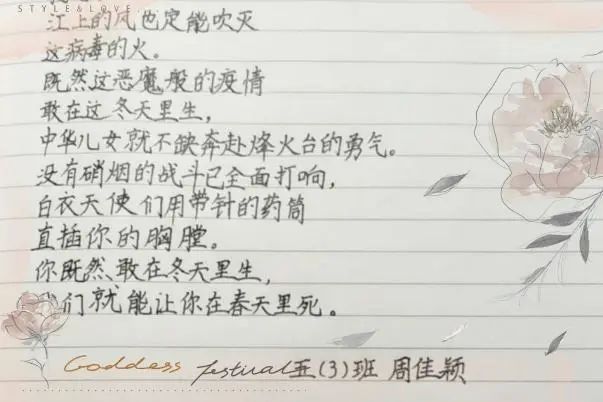 STYLE&LOVE
江上的风也定能吹灭
这病毒的火。
既然这恶魔般的疫情
敢在这冬天里生，
中华儿女就不缺奔赴烽火台的勇气。
没有硝烟的战斗已全面打响，
白衣天使们用带针的药筒
直插你的胸膛。
你既然敢在冬天里生，
们就能让你在春天里死。
Goddess festival 五(3)班 周佳颖